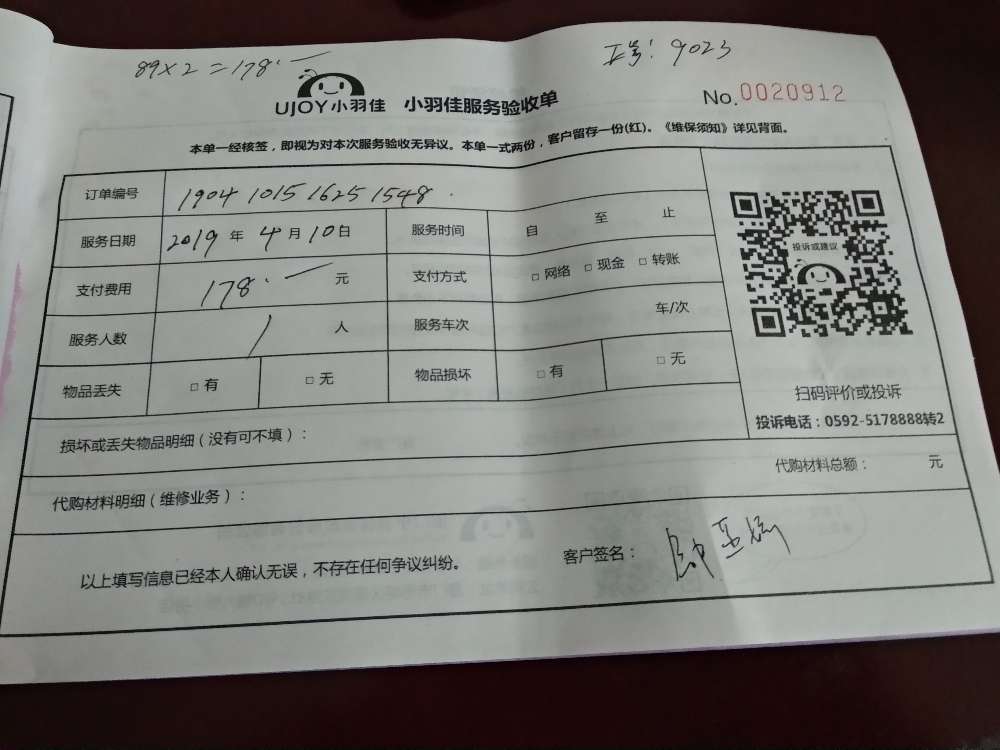 89×2=178.
工号：9023
UJOY小羽佳 小羽佳服务验收单
No.0020912
本单一经核签，即视为对本次服务验收无异议。本单一式两份，客户留存一份(红)。《维保须知》详见背面。
订单编号 1904 1015 1625 1548
服务日期 2019年4月10日 服务时间 自 至 止
支付费用 178. 元 支付方式 □网络 □现金 □转账
服务人数 1 人 服务车次 车/次
物品丢失 □有 □无 物品损坏 □有 □无
投诉或建议
扫码评价或投诉
投诉电话：0592-5178888转2
损坏或丢失物品明细（没有可不填）：
代购材料明细（维修业务）： 代购材料总额： 元
以上填写信息已经本人确认无误，不存在任何争议纠纷。 客户签名：